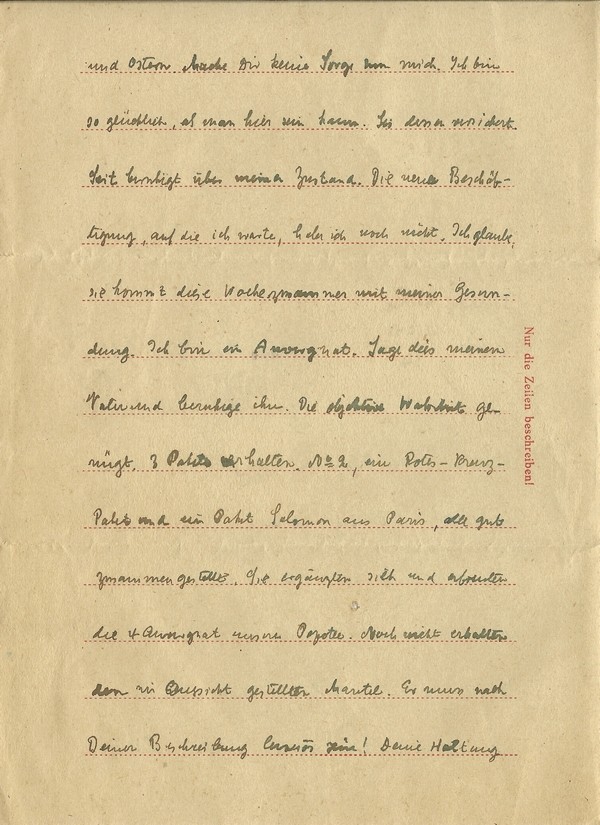 und Ostern. Mache Dir keine Sorge um mich. Ich bin
so glücklich, als man hier sein kann. Sei dessen versichert
Seit beruhigt über meinen Zustand. Die neue Beschäf-
tigung, auf die ich warte, habe ich noch nicht. Ich glaube,
sie kommt diese Woche mit meiner Gesun-
dung. Ich bin ein Auvergnat. Sage dies meinem
Vater und beruhige ihn. Die objektive Wahrheit ge-
nügt. 3 Pakete erhalten. No 2, ein Rotes-Kreuz-
Paket und ein Paket Salomon aus Paris, alle gut
zusammengestellt. Sie ergänzten sich und
die 4 Auvergnat unserer Popote. Noch nicht erhalten
den in Aussicht gestellten Mantel. Er muss nach
Deiner Beschreibung luxuriös sein! Deine Haltung
Nur die Zeilen beschreiben!